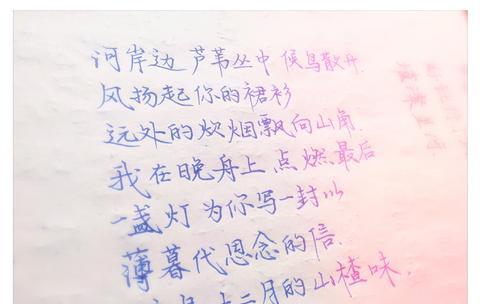 河岸边 芦苇丛中 候鸟散开
风扬起你的裙衫
远处的炊烟飘向山南
我在晚舟上点燃最后
一盏灯 为你写一封以
薄暮代思念的信.
十二月的山楂味.